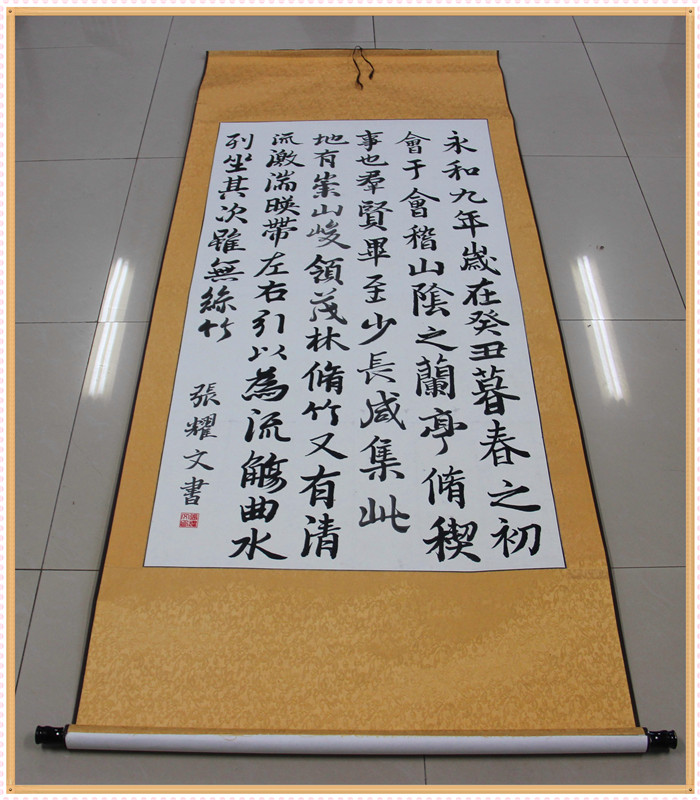 永和九年歲在癸丑暮春之初
會于會稽山陰之蘭亭脩稧
事也羣賢畢至少長咸集此
地有崇山峻領茂林脩竹又有清
流激湍暎帶左右引以為流觴曲水
列坐其次雖無絲竹
張耀文書